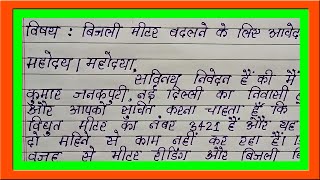 विषय : बिजली मीटर बदलने के लिए आवेद
महोदय / महोदया,
सविनय निवेदन हैं की मैं
कुमार जनकपुरी, नई दिल्ली का निवासी
और आपको सूचित करना चाहता हैं कि
विद्युत मीटर का नंबर 3421 हैं और यह
दो महिने से काम नहीं कर रहा हैं।
वजह से मीटर रीडिंग और बिजली